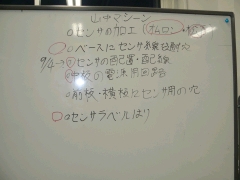 山中マシーン
○センサの加工(オムロン
○ベースにセンサ線放射穴
9/4→○センサの配置・配線
○中板の電源周回路
○前板・横板にセンサ用の穴
○センサラベルはり